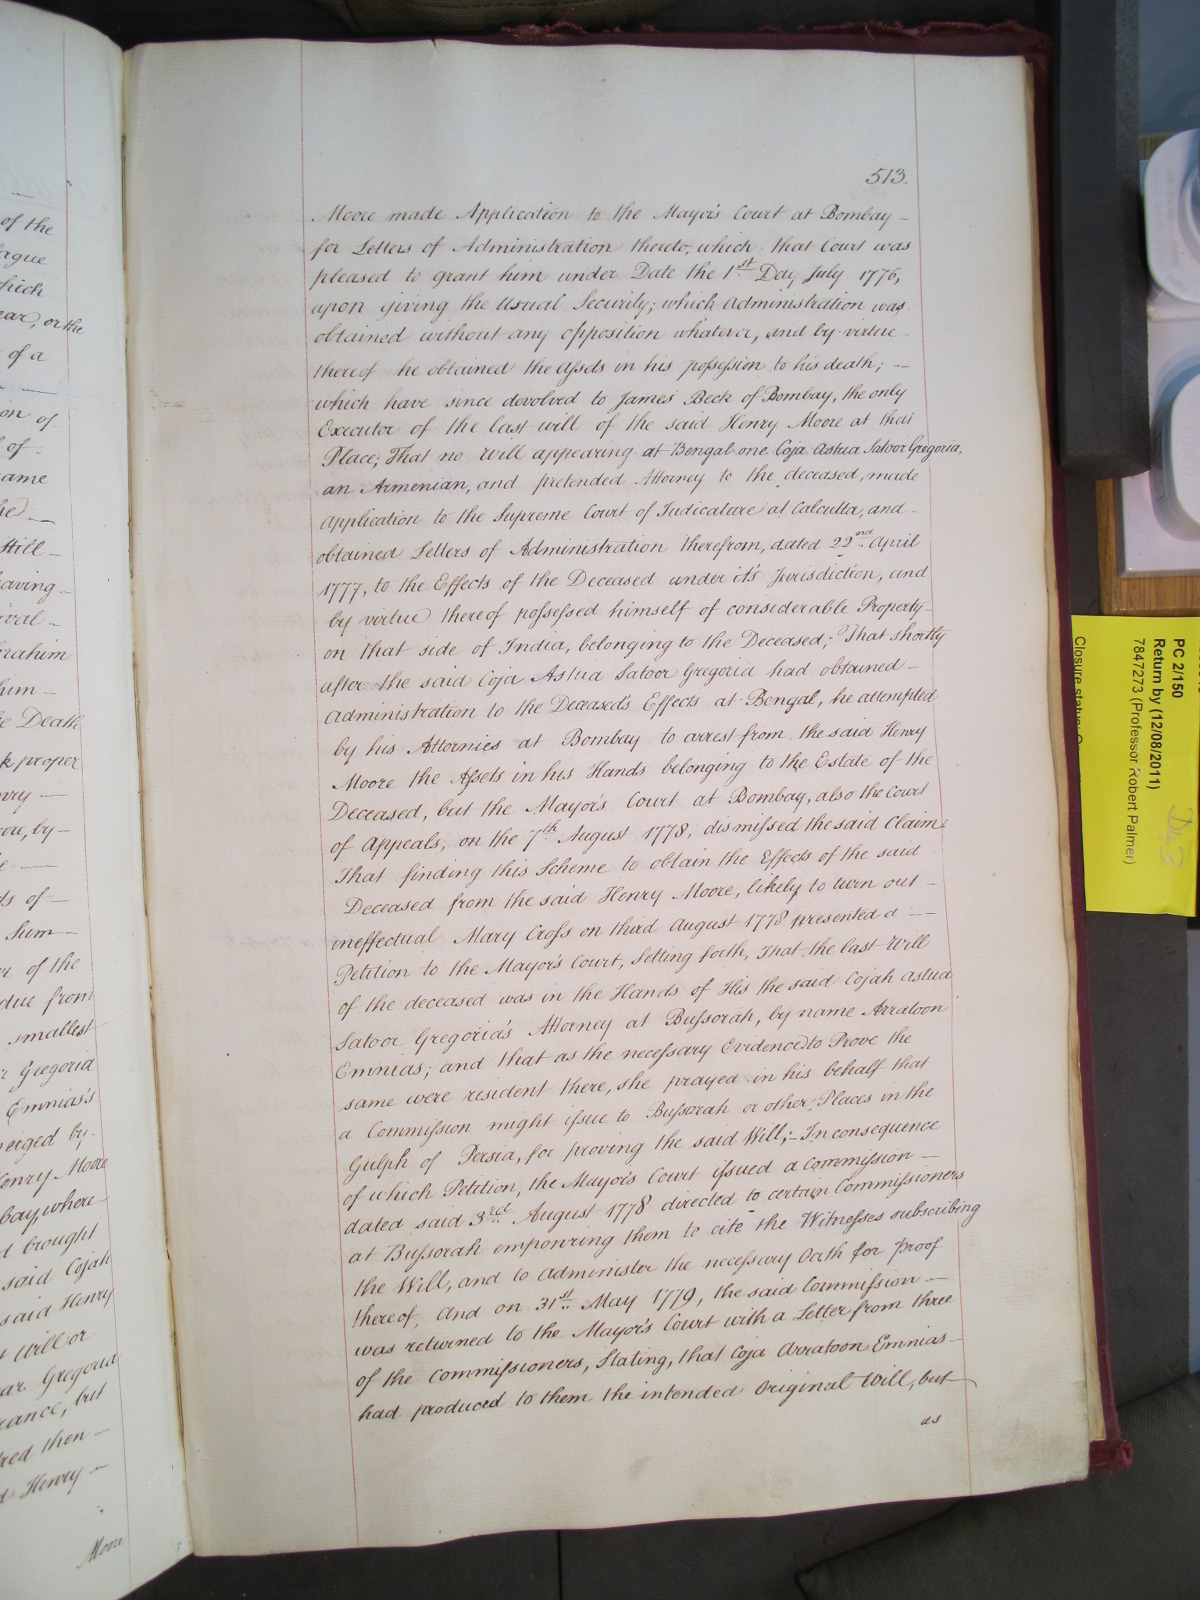 513.
Moore made Application to the Mayor's Court at Bombay –
for Letters of Administration thereto, which that Court was
pleased to grant him under Date the 1st Day July 1776,
upon giving the Usual Security; which Administration was
obtained without any opposition whatever, and by virtue
thereof he obtained the Assets in his possession to his death; –
which have since devolved to James Beck of Bombay, the only
Executor of the last will of the said Henry Moore at that
Place; That no Will appearing at Bengal one Coja Astua Satoor Gregoria,
an Armenian, and pretended Attorney to the deceased, made
Application to the Supreme Court of Judicature at Calcutta, and –
obtained Letters of Administration therefrom, dated 22nd April
1777, to the Effects of the Deceased under it's Jurisdiction, and
by virtue thereof possessed himself of considerable Property –
on that side of India, belonging to the Deceased; – That shortly
after the said Coja Astua Satoor Gregoria had obtained –
Administration to the Deceased's Effects at Bengal, he attempted
by his Attornies at Bombay to arrest from the said Henry
Moore the Assets in his Hands belonging to the Estate of the
Deceased, but the Mayor's Court at Bombay, also the Court
of Appeals, on the 7th August 1778, dismissed the said Claim.
That finding this Scheme to obtain the Effects of the said
Deceased from the said Henry Moore, likely to turn out –
ineffectual Mary Cross on third August 1778 presented a –
Petition to the Mayor's Court, Setting forth, That the last Will
of the deceased was in the Hands of His the said Cojah Astua
Satoor Gregoria's Attorney at Bussorah, by name Arratoon
Emnias; and that as the necessary Evidence to Prove the
same were resident there, she prayed in his behalf that
a Commission might issue to Bussorah or other Places in the
Gulph of Persia, for proving the said Will; – In consequence
of which Petition, the Mayor's Court issued a Commission –
dated said 3rd August 1778 directed to certain Commissioners
at Bussorah emporiring them to cite the Witnesses subscribing
the Will, and to Administer the necessary Oath for Proof
thereof, And on 31st May 1779, the said Commission –
was returned to the Mayor's Court with a Letter from three
of the Commissioners, Stating, that Coja Arratoon Emnias –
had produced to them the intended Original Will, but
as
of the
which
of a
of
of –
ame
Still –
aving –
him –
e Death
k proper
–
ts of –
Sum –
of the
due from
smallest
Gregoria
Emnias's
by
Henry Moore
bay, where –
brought
said Cojah
said Henry
will or
Gregoria
but
then –
Henry –
Moore
PC 2/150
Return by (12/08/2011)
7847273 (Professor Robert Palmer)
Closure status: